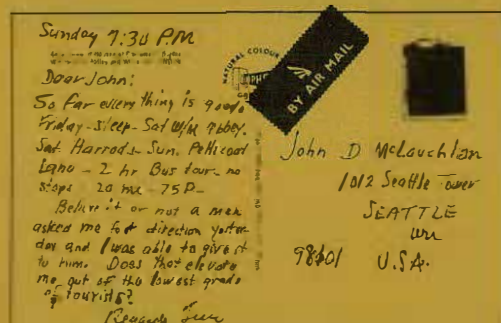 Sunday 7:30 P.M
Dear John:
So far everything is good
Friday - sleep - Sat W/M Abbey.
Sat. Harrods - Sun. Petticoat
Lane - 2 hr Bus tour - no
stops 20 mi - 75 P -
Believe it or not a man
asked me for direction yester-
day and I was able to give it
to him. Does that elevate
me out of the lowest grade
of tourists?
Regards
NATURAL COLOUR
BY AIR MAIL
John D McLauchlan
1012 Seattle Tower
SEATTLE
98101 U.S.A.